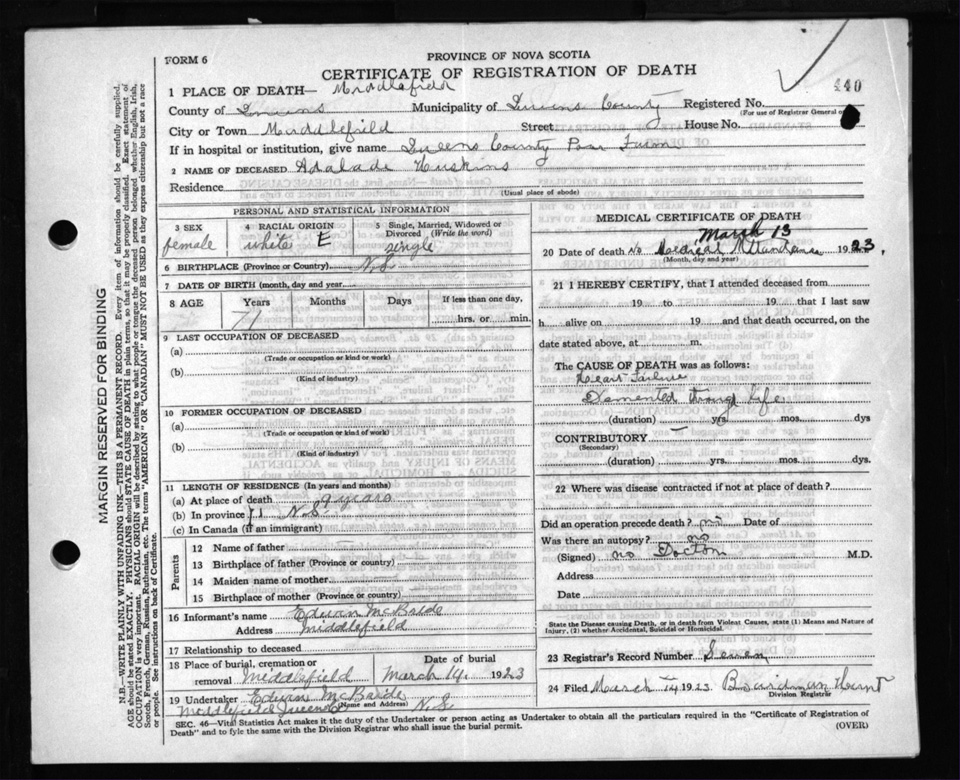 FORM 6
PROVINCE OF NOVA SCOTIA
CERTIFICATE OF REGISTRATION OF DEATH
240
1 PLACE OF DEATH— Middlefield
County of Queens Municipality of Queens County Registered No.
(For use of Registrar General
City or Town Middlefield Street House No.
If in hospital or institution, give name Queens County Poor Farm
2 NAME OF DECEASED Adalade Huskins
Residence
(Usual place of abode)
PERSONAL AND STATISTICAL INFORMATION
3 SEX 4 RACIAL ORIGIN 5 Single, Married, Widowed or Divorced (Write the word)
female white E single
6 BIRTHPLACE (Province or Country) N.S.
7 DATE OF BIRTH (month, day and year)
8 AGE Years Months Days If less than one day,
71 hrs. or min.
9 LAST OCCUPATION OF DECEASED
(a)
(Trade or occupation or kind of work)
(b)
(Kind of industry)
10 FORMER OCCUPATION OF DECEASED
(a)
(Trade or occupation or kind of work)
(b)
(Kind of industry)
11 LENGTH OF RESIDENCE (In years and months)
(a) At place of death 9 years
(b) In province 71 N.S.
(c) In Canada (if an immigrant)
Parents
12 Name of father
13 Birthplace of father (Province or country)
14 Maiden name of mother
15 Birthplace of mother (Province or country)
16 Informant's name Edwin McBride
Address Middlefield
17 Relationship to deceased
18 Place of burial, cremation or removal Middlefield
Date of burial
March 14. 1923
19 Undertaker Edwin McBride
(Name and Address)
Middlefield Queens N.S.
MEDICAL CERTIFICATE OF DEATH
March 13
20 Date of death No Medical Attendance 1923.
(Month, day and year)
21 I HEREBY CERTIFY, that I attended deceased from
19 to 19 that I last saw
h alive on 19 and that death occurred, on the
date stated above, at m.
The CAUSE OF DEATH was as follows:
Heart Failure
Demented through life
(duration) yrs. mos. dys
CONTRIBUTORY —
(Secondary)
(duration) yrs. mos. dys.
22 Where was disease contracted if not at place of death?
Did an operation precede death? no Date of
Was there an autopsy? no
(Signed) no Doctor M.D.
Address
Date
State the Disease causing Death, or in death from Violent Causes, state (1) Means and Nature of
Injury, (2) whether Accidental, Suicidal or Homicidal.
23 Registrar's Record Number Seven
24 Filed March 14 1923 Boardman Hunt
Division Registrar
SEC. 46—Vital Statistics Act makes it the duty of the Undertaker or person acting as Undertaker to obtain all the particulars required in the "Certificate of Registration of
Death" and to fyle the same with the Division Registrar who shall issue the burial permit.
(OVER)
MARGIN RESERVED FOR BINDING
N.B.—WRITE PLAINLY WITH UNFADING INK—THIS IS A PERMANENT RECORD. Every item of information should be carefully supplied.
AGE should be stated EXACTLY. PHYSICIANS should STATE CAUSE OF DEATH in plain terms, so that it may be properly classified. Exact statement of
OCCUPATION is very important. RACIAL ORIGIN will be described by stating to what people or tongue the deceased person belonged whether English, Irish,
Scotch, French, German, Russian, Ruthenian, etc. The terms "AMERICAN" OR "CANADIAN" MUST NOT BE USED as they express citizenship but not a race
or people. See instructions on back of Certificate.